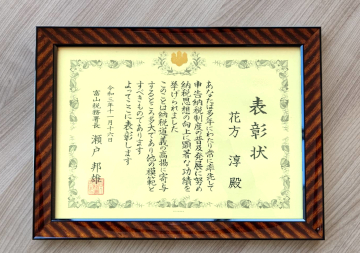 表彰状
花方 淳 殿
あなたは多年にわたり常に率先して
申告納税制度の普及発展に努め
納税思想の向上に顕著な功績を
挙げられました
このことは納税道義の高揚に寄与
するところ多大であり他の模範と
すべきものであります
よってここに表彰します
令和三年十一月十六日
富山税務署長 瀬戸 邦雄